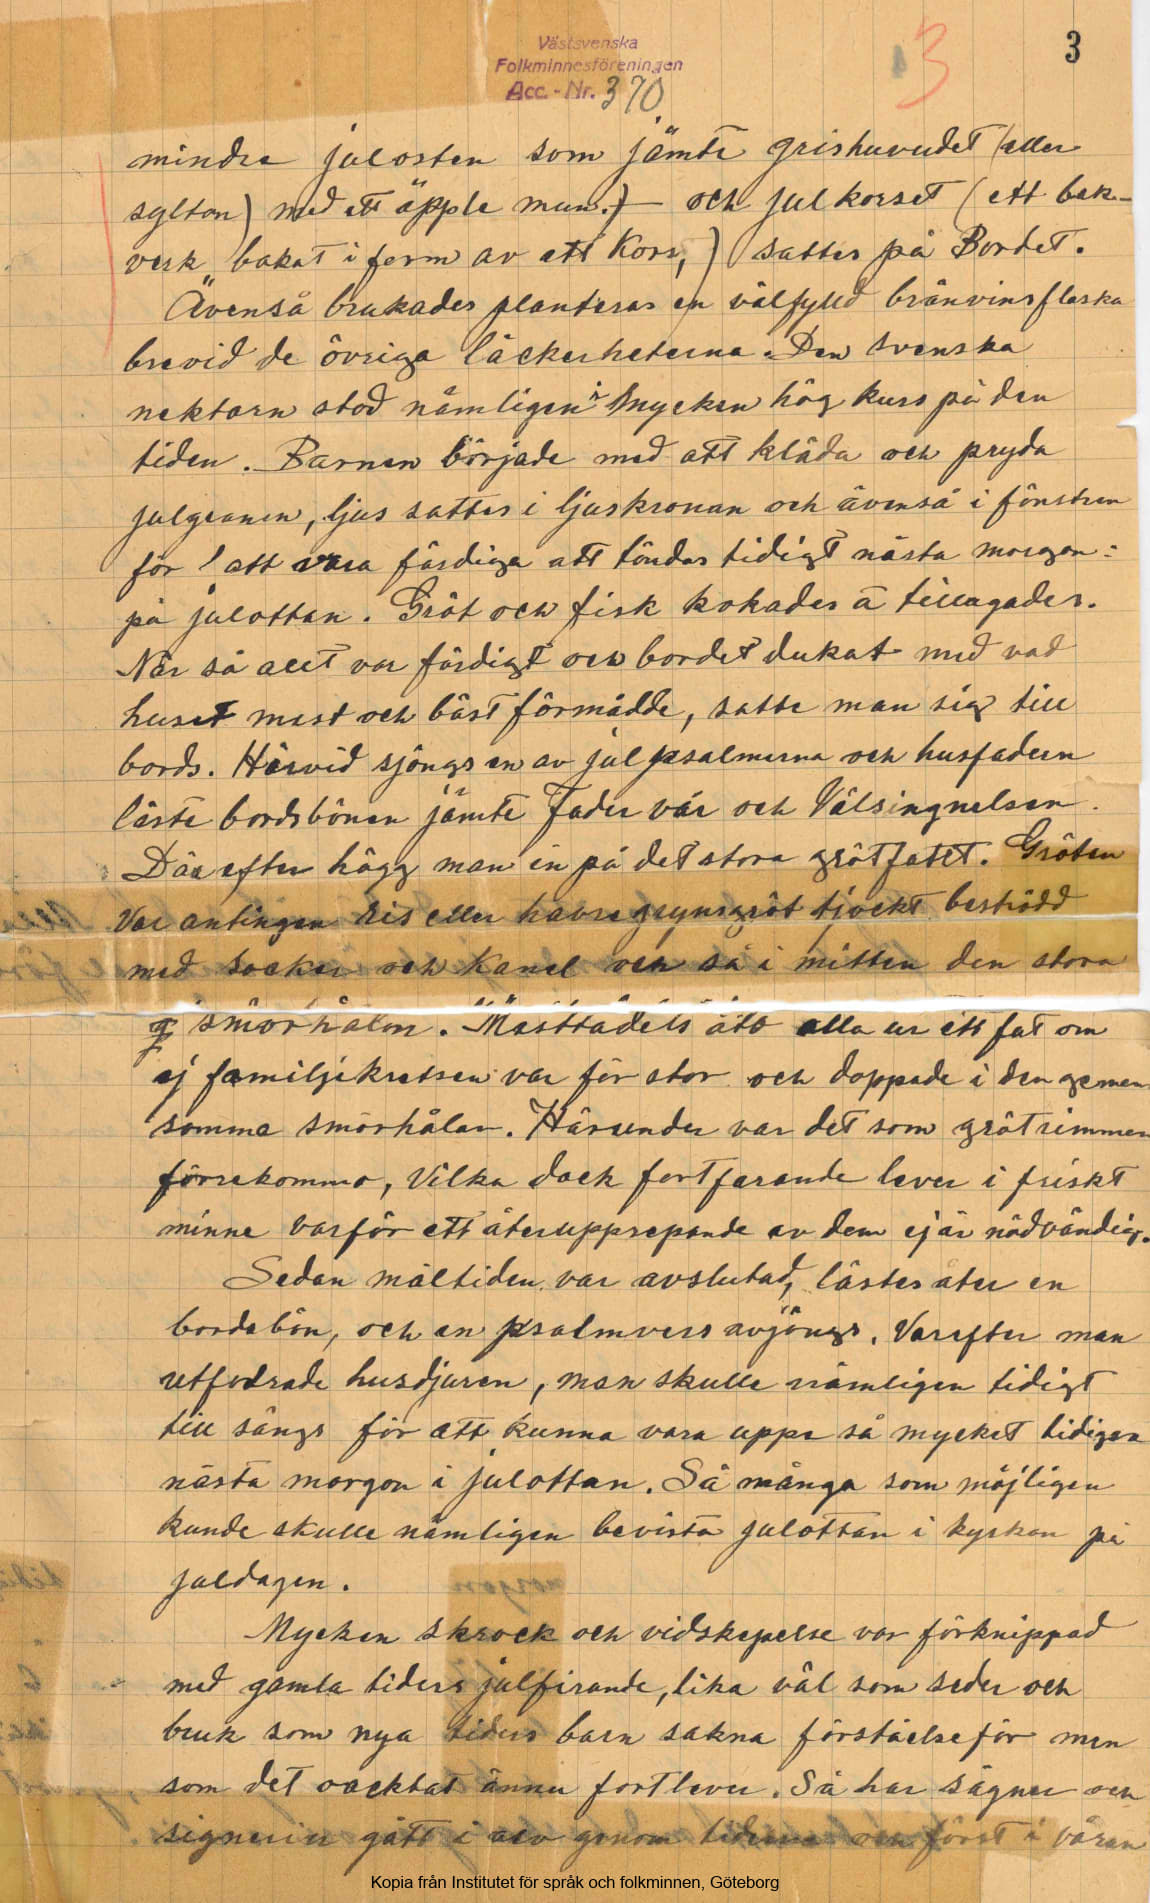 Västsvenska
Folkminnesföreningen
Acc.-Nr. 370
3
3
mindre julosten som jämte grishuvudet (eller
sylton) med ett äpple mun.) — och julkorset (ett bak-
verk, bakat i form av ett Kors,) sattes på Bordet.
Ävenså brukades planteras en välfylld bränvinsflaska
brevid de övriga läckerheterna. Den svenska
nektarn stod nämligen i mycken hög kurs på den
tiden. Barnen började med att kläda och pryda
julgranen, ljus sattes i ljuskronan och ävenså i fönstren
för att vara färdiga att tändas tidigt nästa morgon:
på julottan. Gröt och fisk kokades å tillagades.
När så allt var färdigt och bordet dukat med vad
huset mest och bäst förmådde, satte man sig till
bords. Härvid sjöngs en av julpsalmerna och husfadern
läste bordsbönen jämte Fader vår och Välsingnelsen.
Därefter högg man in på det stora grötfatet. Gröten
Var antingen ris eller havregrynsgröt tjockt beströdd
med socker och Kanel och så i mitten den stora
smörhålan. Mästtadels åto alla ur ett fat om
ej familjekretsen var för stor och doppade i den gemen
samma smörhålan. Härunder var det som grötrimmen
förrekommo, Vilka dock fortfarande lever i friskt
minne varför ett återupprepande av dem ej är nödvändig.
Sedan måltiden var avslutad, lästes åter en
bordsbön, och en psalmvers avjöngs. Varefter man
utfodrade husdjuren, man skulle nämligen tidigt
till sängs för att kunna vara uppe så mycket tidigen
nästa morgon i julottan. Så många som möjligen
kunde skulle nämligen bevista julottan i kyrkan på
juldagen.
Mycken skrock och vidskepelse var förknippad
med gamla tiders julfirande, lika väl som seder och
bruk som nya tiders barn sakna förståelse för men
som det oacktat ännu fortlever. Så har sägner och
signerier gått i arv genom tiderna och först i våran
Kopia från Institutet för språk och folkminnen, Göteborg